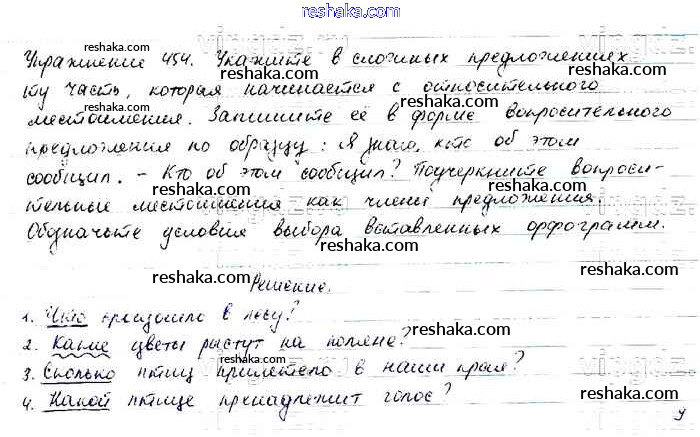 reshaka.com
Упражнение 454. Укажите в сложных предложениях
ту часть, которая начинается с относительного
местоимения. Запишите её в форме вопросительного
предложения по образцу: Я знаю, кто об этом
сообщил. – Кто об этом сообщил? Подчеркните вопроси-
тельные местоимения как члены предложения.
Обозначьте условия выбора вставленных орфограмм.
Решение.
1. Что произошло в лесу?
2. Какие цветы растут на поляне?
3. Сколько птиц прилетело в наши края?
4. Какой птице принадлежит голос?